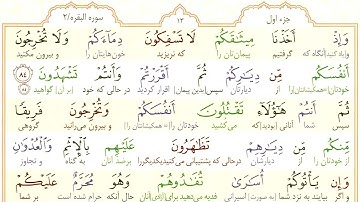 جزء اول ۱۳ سوره البقره/۲
وَإِذْ أَخَذْنَا مِيثَاقَكُمْ لَا تَسْفِكُونَ دِمَاءَكُمْ وَلَا تُخْرِجُونَ
و [یاد کنید] آنگاه که گرفتیم پیمان‌تان را که نریزید خون‌هایتان را و بیرون مکنید
أَنْفُسَكُمْ مِنْ دِيَارِكُمْ ثُمَّ أَقْرَرْتُمْ وَأَنْتُمْ تَشْهَدُونَ ۸۴
خودتان را از سپس اقرار کردید در حالی که خود گواهید
ثُمَّ أَنْتُمْ هَؤُلَاءِ تَقْتُلُونَ أَنْفُسَكُمْ وَتُخْرِجُونَ فَرِيقًا
سپس شما می‌کشید خودتان را و بیرون می‌رانید گروهی
مِنْكُمْ مِنْ دِيَارِهِمْ تَظَاهَرُونَ عَلَيْهِمْ بِالْإِثْمِ وَالْعُدْوَانِ
از خودتان را از در حالی که پشتیبانی می‌کنید یکدیگر را بر ضد آنان به گناه و تجاوز
وَإِنْ يَأْتُوكُمْ أُسَارَى تُفَادُوهُمْ وَهُوَ مُحَرَّمٌ عَلَيْكُمْ
و اگر بیایند به نزد شما فدیه می‌دهید برای آنان حال آنکه حرام شده است بر شما